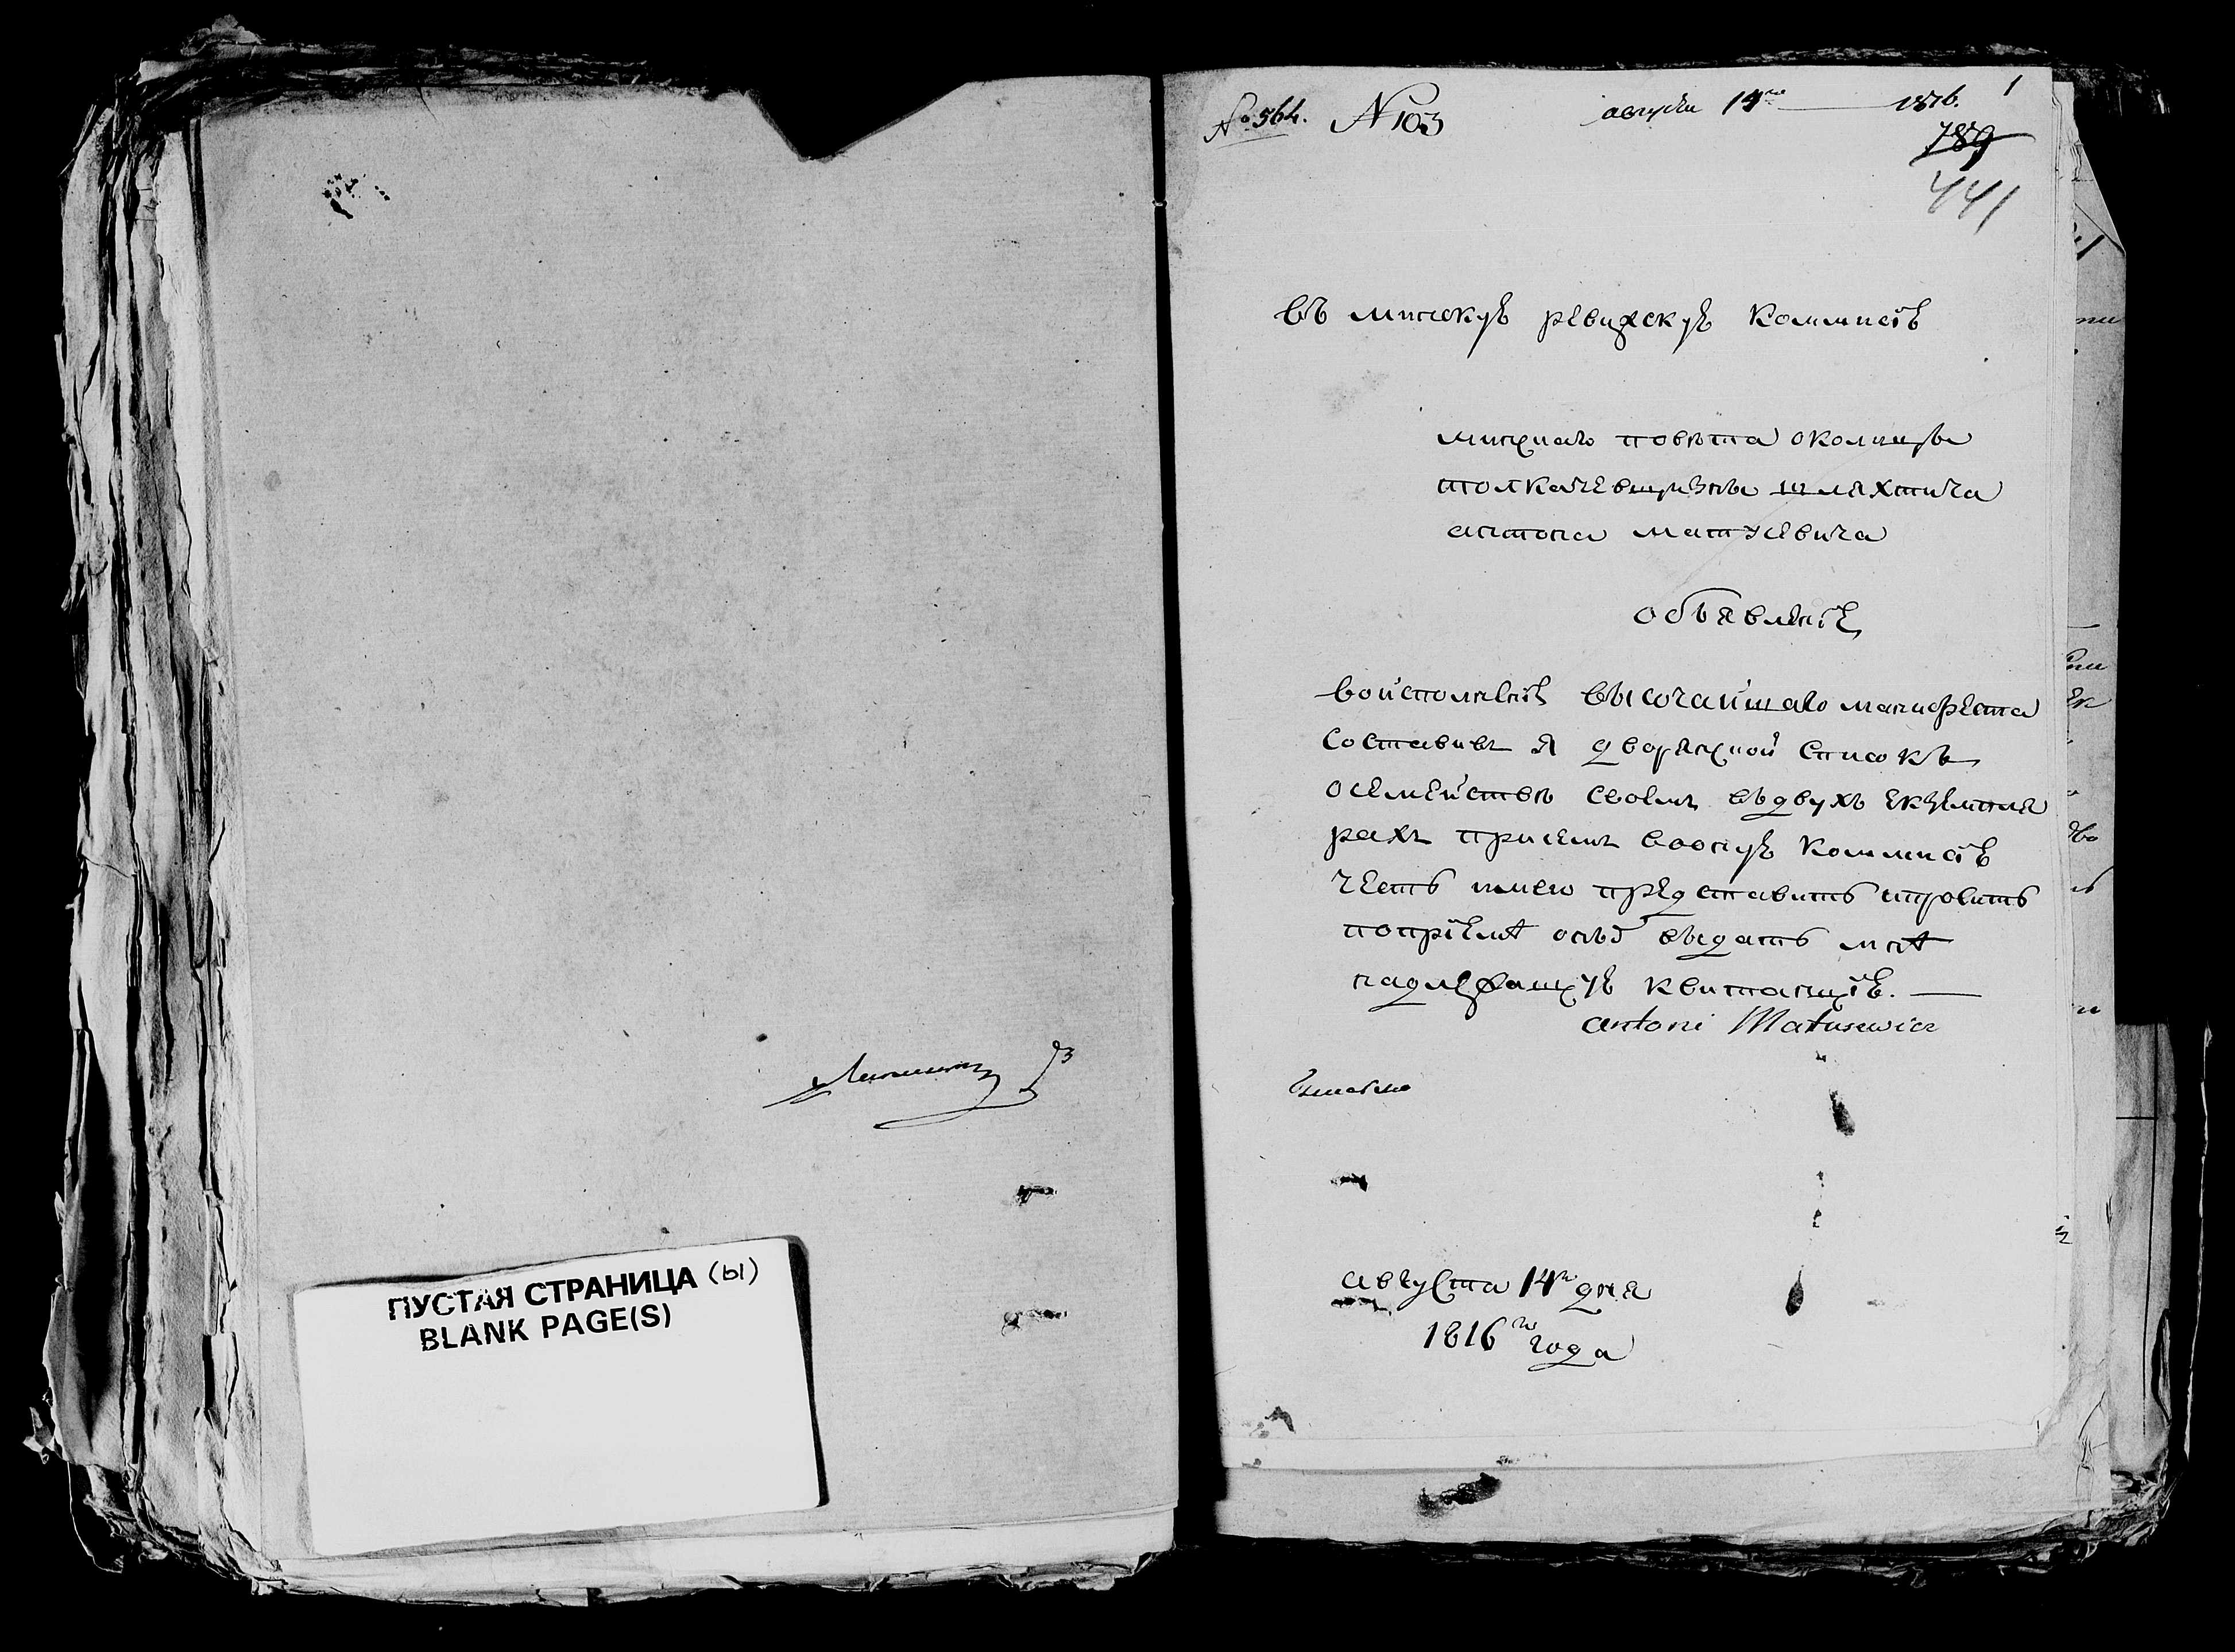 ПУСТАЯ СТРАНИЦА (ы)
BLANK PAGE(S)
№ 564. N 103 августа 14го 1816. 1
789
441
въ минскую ревизскую коммисію
минскаго повѣта околицы
толкачевщизны шляхтича
антона матусевича
объявленіе
воисполненіе высочайшаго манифеста
составивъ я дворянской списокъ
осемействѣ своемъ въдвухъ екземпля
рахъ присемъ вооную коммисію
честь имею представить
попріеме оныхъ выдать мне
надлежащую квитанцію.
antoni Matusewicz
августа 14го дня
1816го года